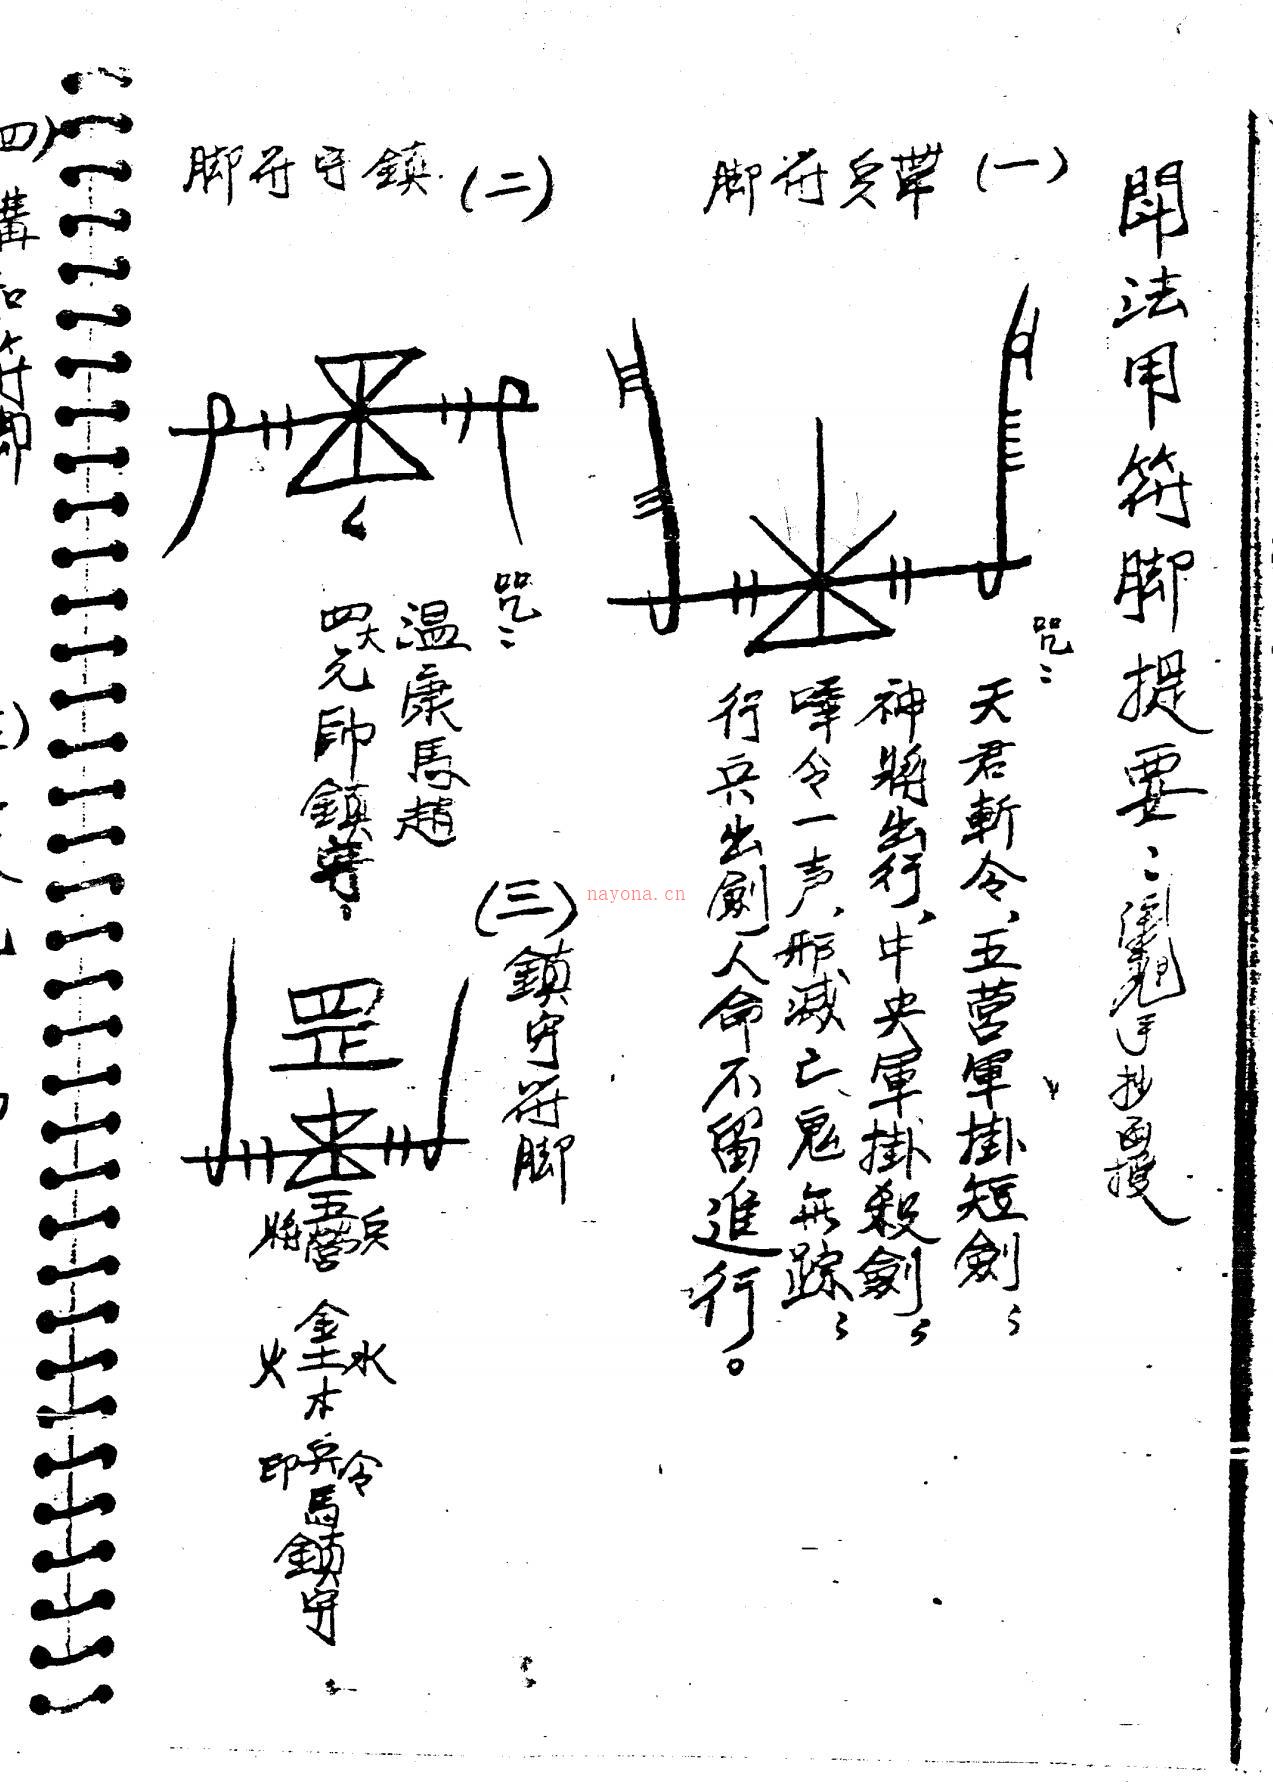 法用符脚提要：手抄面授
(一)兵符脚
咒：
天君斬令、五營軍掛短劍；
神將出行、中央軍掛殺劍；
令一声、形滅亡、鬼無踪；
行兵出劍人命不留進行。
(二)鎮守符脚
咒：
温康馬趙
四大元帥鎮守。
(三)鎮守符脚
罡
兵五營將
水金土火木
令兵印馬鎮守
nayona.cn